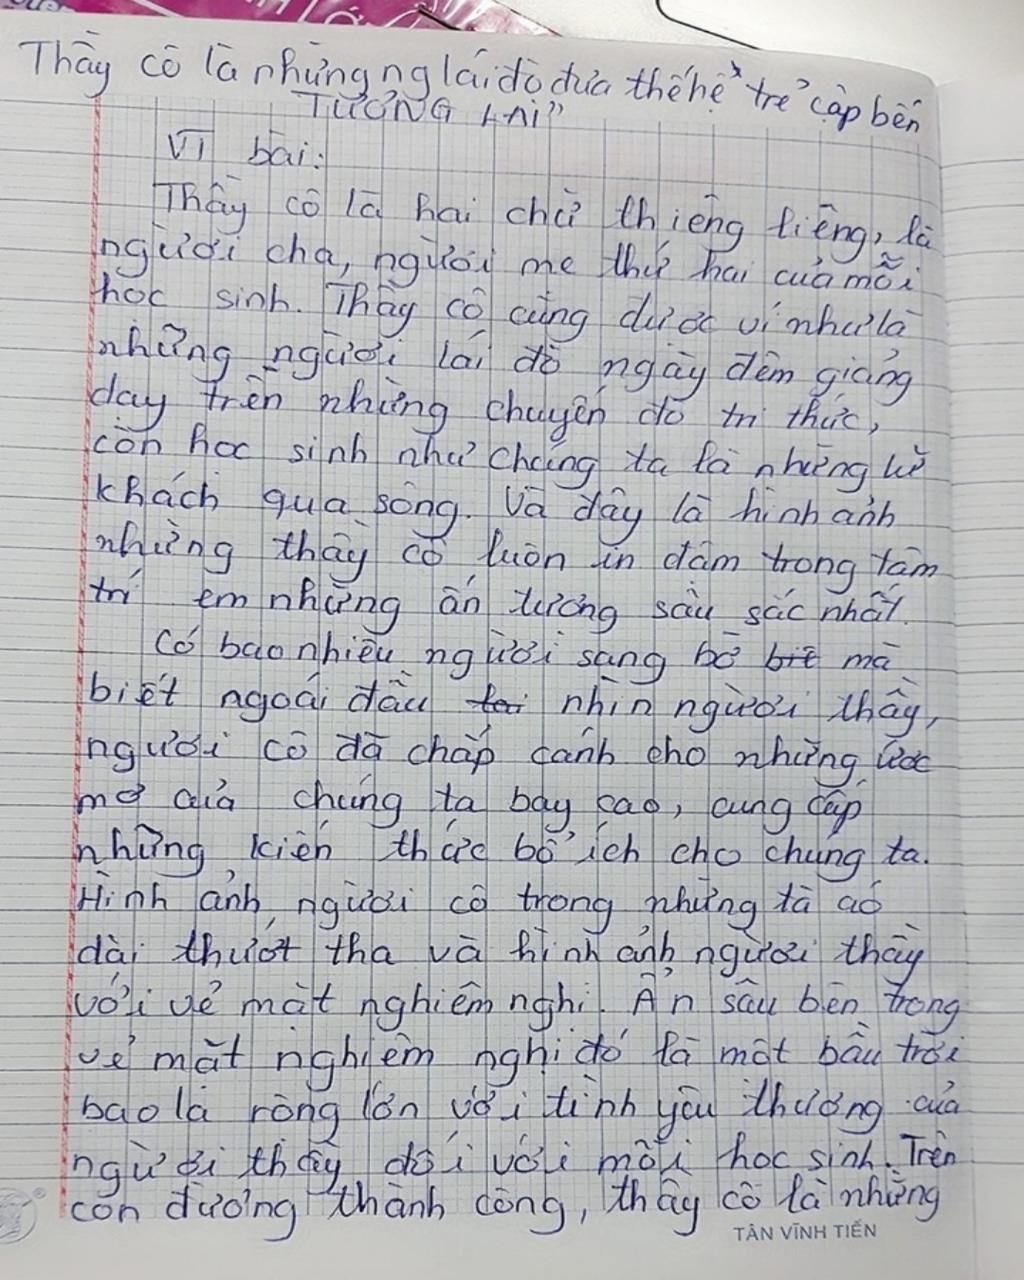 Thầy cô là những ng lái đò đưa thế hệ "trẻ cập bến
TƯƠNG LAI"
VT bài:
Thầy cô là hai chữ thiêng liêng, là
người cha, người mẹ thứ hai của mỗi
học sinh. Thầy cô cũng được ví như là
những người lái đò ngày đêm giảng
dạy trên những chuyến đò tri thức,
còn học sinh như chúng ta là những kẻ
khách qua sông. Và đây là hình ảnh
những thầy cô luôn in đậm trong tâm
trí em những ấn tượng sâu sắc nhất.
Có bao nhiêu người sang bờ mà
biết ngoái đầu nhìn người thầy,
người cô đã chấp cánh cho những ước
mơ của chúng ta bay cao, cung cấp
những kiến thức bổ ích cho chúng ta.
Hình ảnh người cô trong những tà áo
dài thướt tha và hình ảnh người thầy
với vẻ mặt nghiêm nghị. Ẩn sâu bên trong
vẻ mặt nghiêm nghị đó là một bầu trời
bao la rộng lớn với tình yêu thương của
người thầy đối với mỗi học sinh. Trên
con đường thành công, thầy cô là những
TÂN VĨNH TIẾN